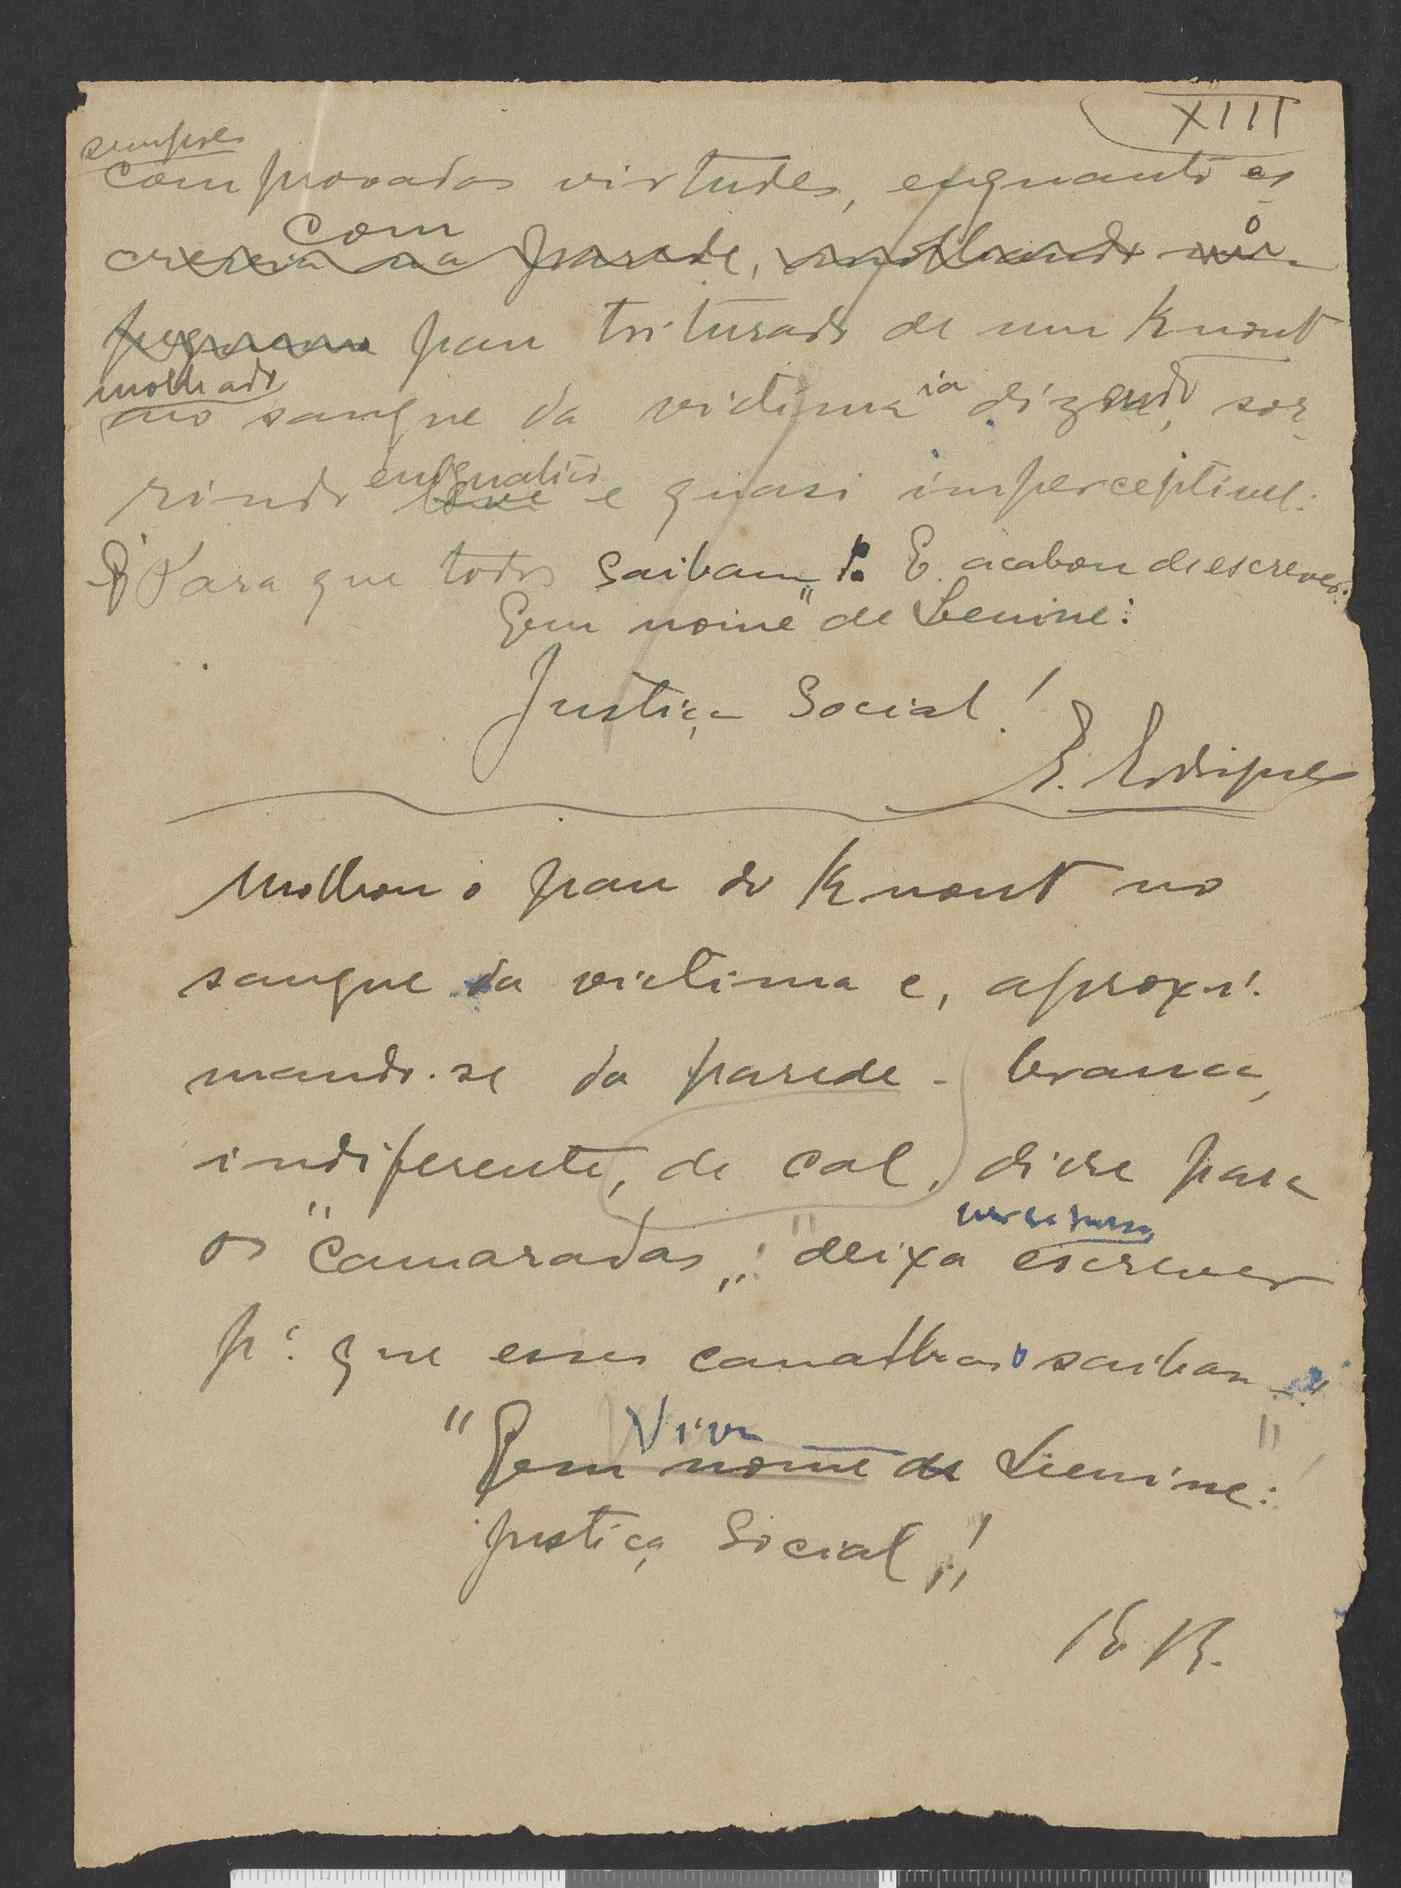 XIII
sempre
comprovadas virtudes, enquanto es
com o
crevia na parede, molhando
pau triturado de um Knout
molhado
no sangue da victima ia dizendo, sor
enigmatico
rindo leve e quasi imperceptivel:
Para que todos saibam. E acabou de escrever:
Em nome de Lenine:
Justiça Social!
Molhou o pau do Knout no
sangue da victima e, aproxi-
mando-se da parede - branca,
indiferente, de cal, disse para
os "camaradas": "deixa escrever
pª que esses canalhas saibam
Viva
"Em nome de Lenine:"
justiça Social!"